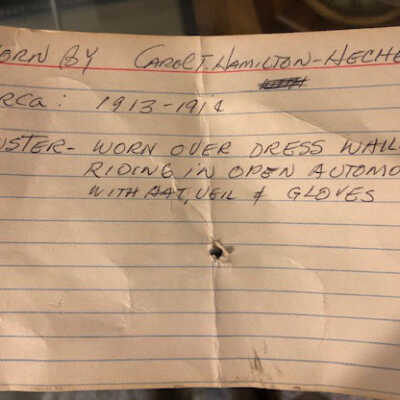 ORN BY CAROL T. HAMILTON-HECHE
RCA: 1913-1914
USTER- WORN OVER DRESS WHIL
RIDING IN OPEN AUTOMO
WITH HAT, VEIL & GLOVES